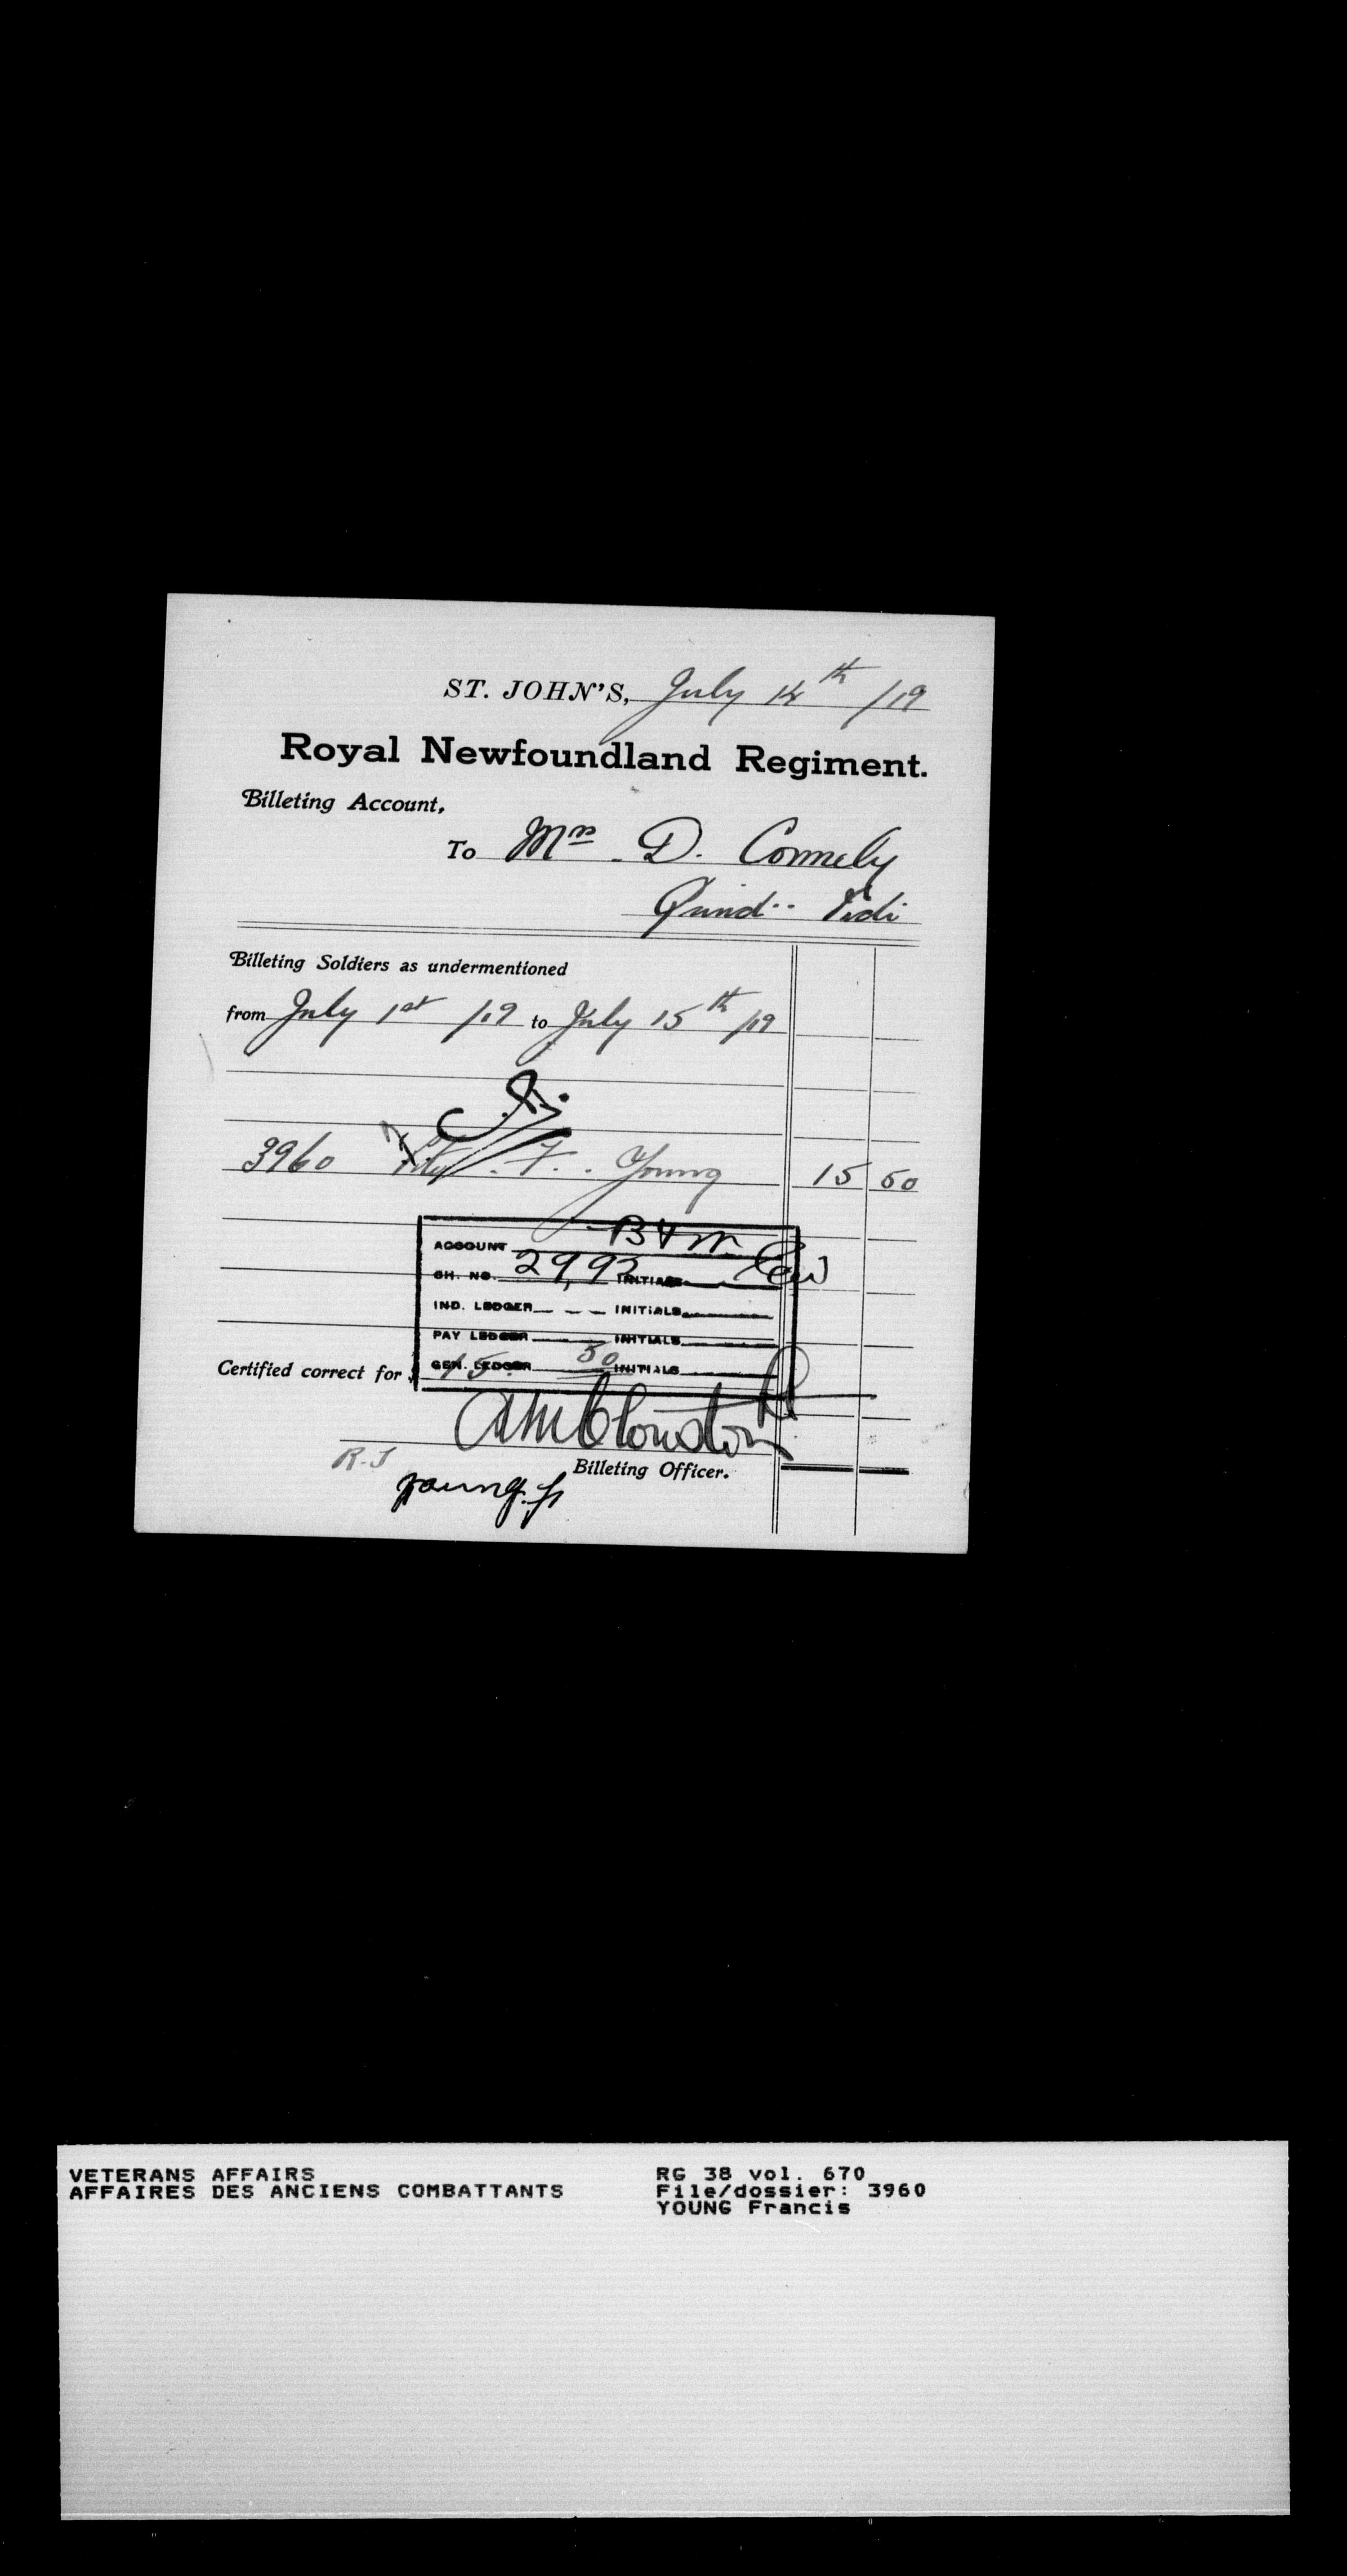 ST. JOHN'S, July 14th /19
Royal Newfoundland Regiment.
Billeting Account,
To Mrs D. Connely
Quidi Vidi
Billeting Soldiers as undermentioned
from July 1st /19 to July 15th /19
3960 F. Young 15 50
ACCOUNT B & M
CH. NO. 2992 INITIALS
IND. LEDGER INITIALS
PAY LEDGER INITIALS
GEN. LEDGER INITIALS
Certified correct for $ 15. 50
Billeting Officer.
R.J
Young. F
VETERANS AFFAIRS
AFFAIRES DES ANCIENS COMBATTANTS
RG 38 vol. 670
File/dossier: 3960
YOUNG Francis